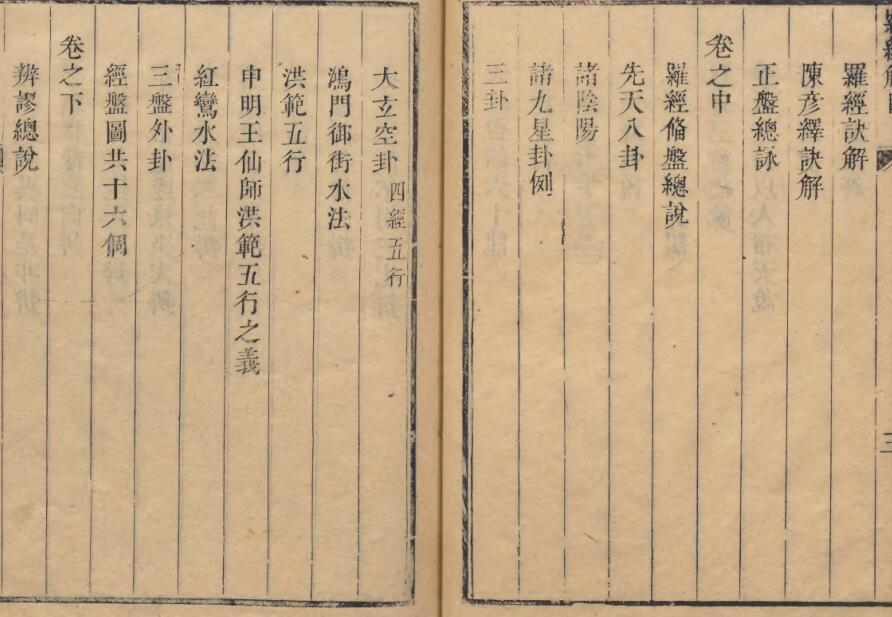 羅經訣解
陳彦繹訣解
正盤總詠
卷之中
羅經脩盤總說
先天八卦
諸陰陽
諸九星卦例
三卦
大玄空卦 四經五行
鴻門御街水法
洪範五行
申明王仙師洪範五行之義
紅鸞水法
三盤外卦
經盤圖共十六個
卷之下
辨謬總說